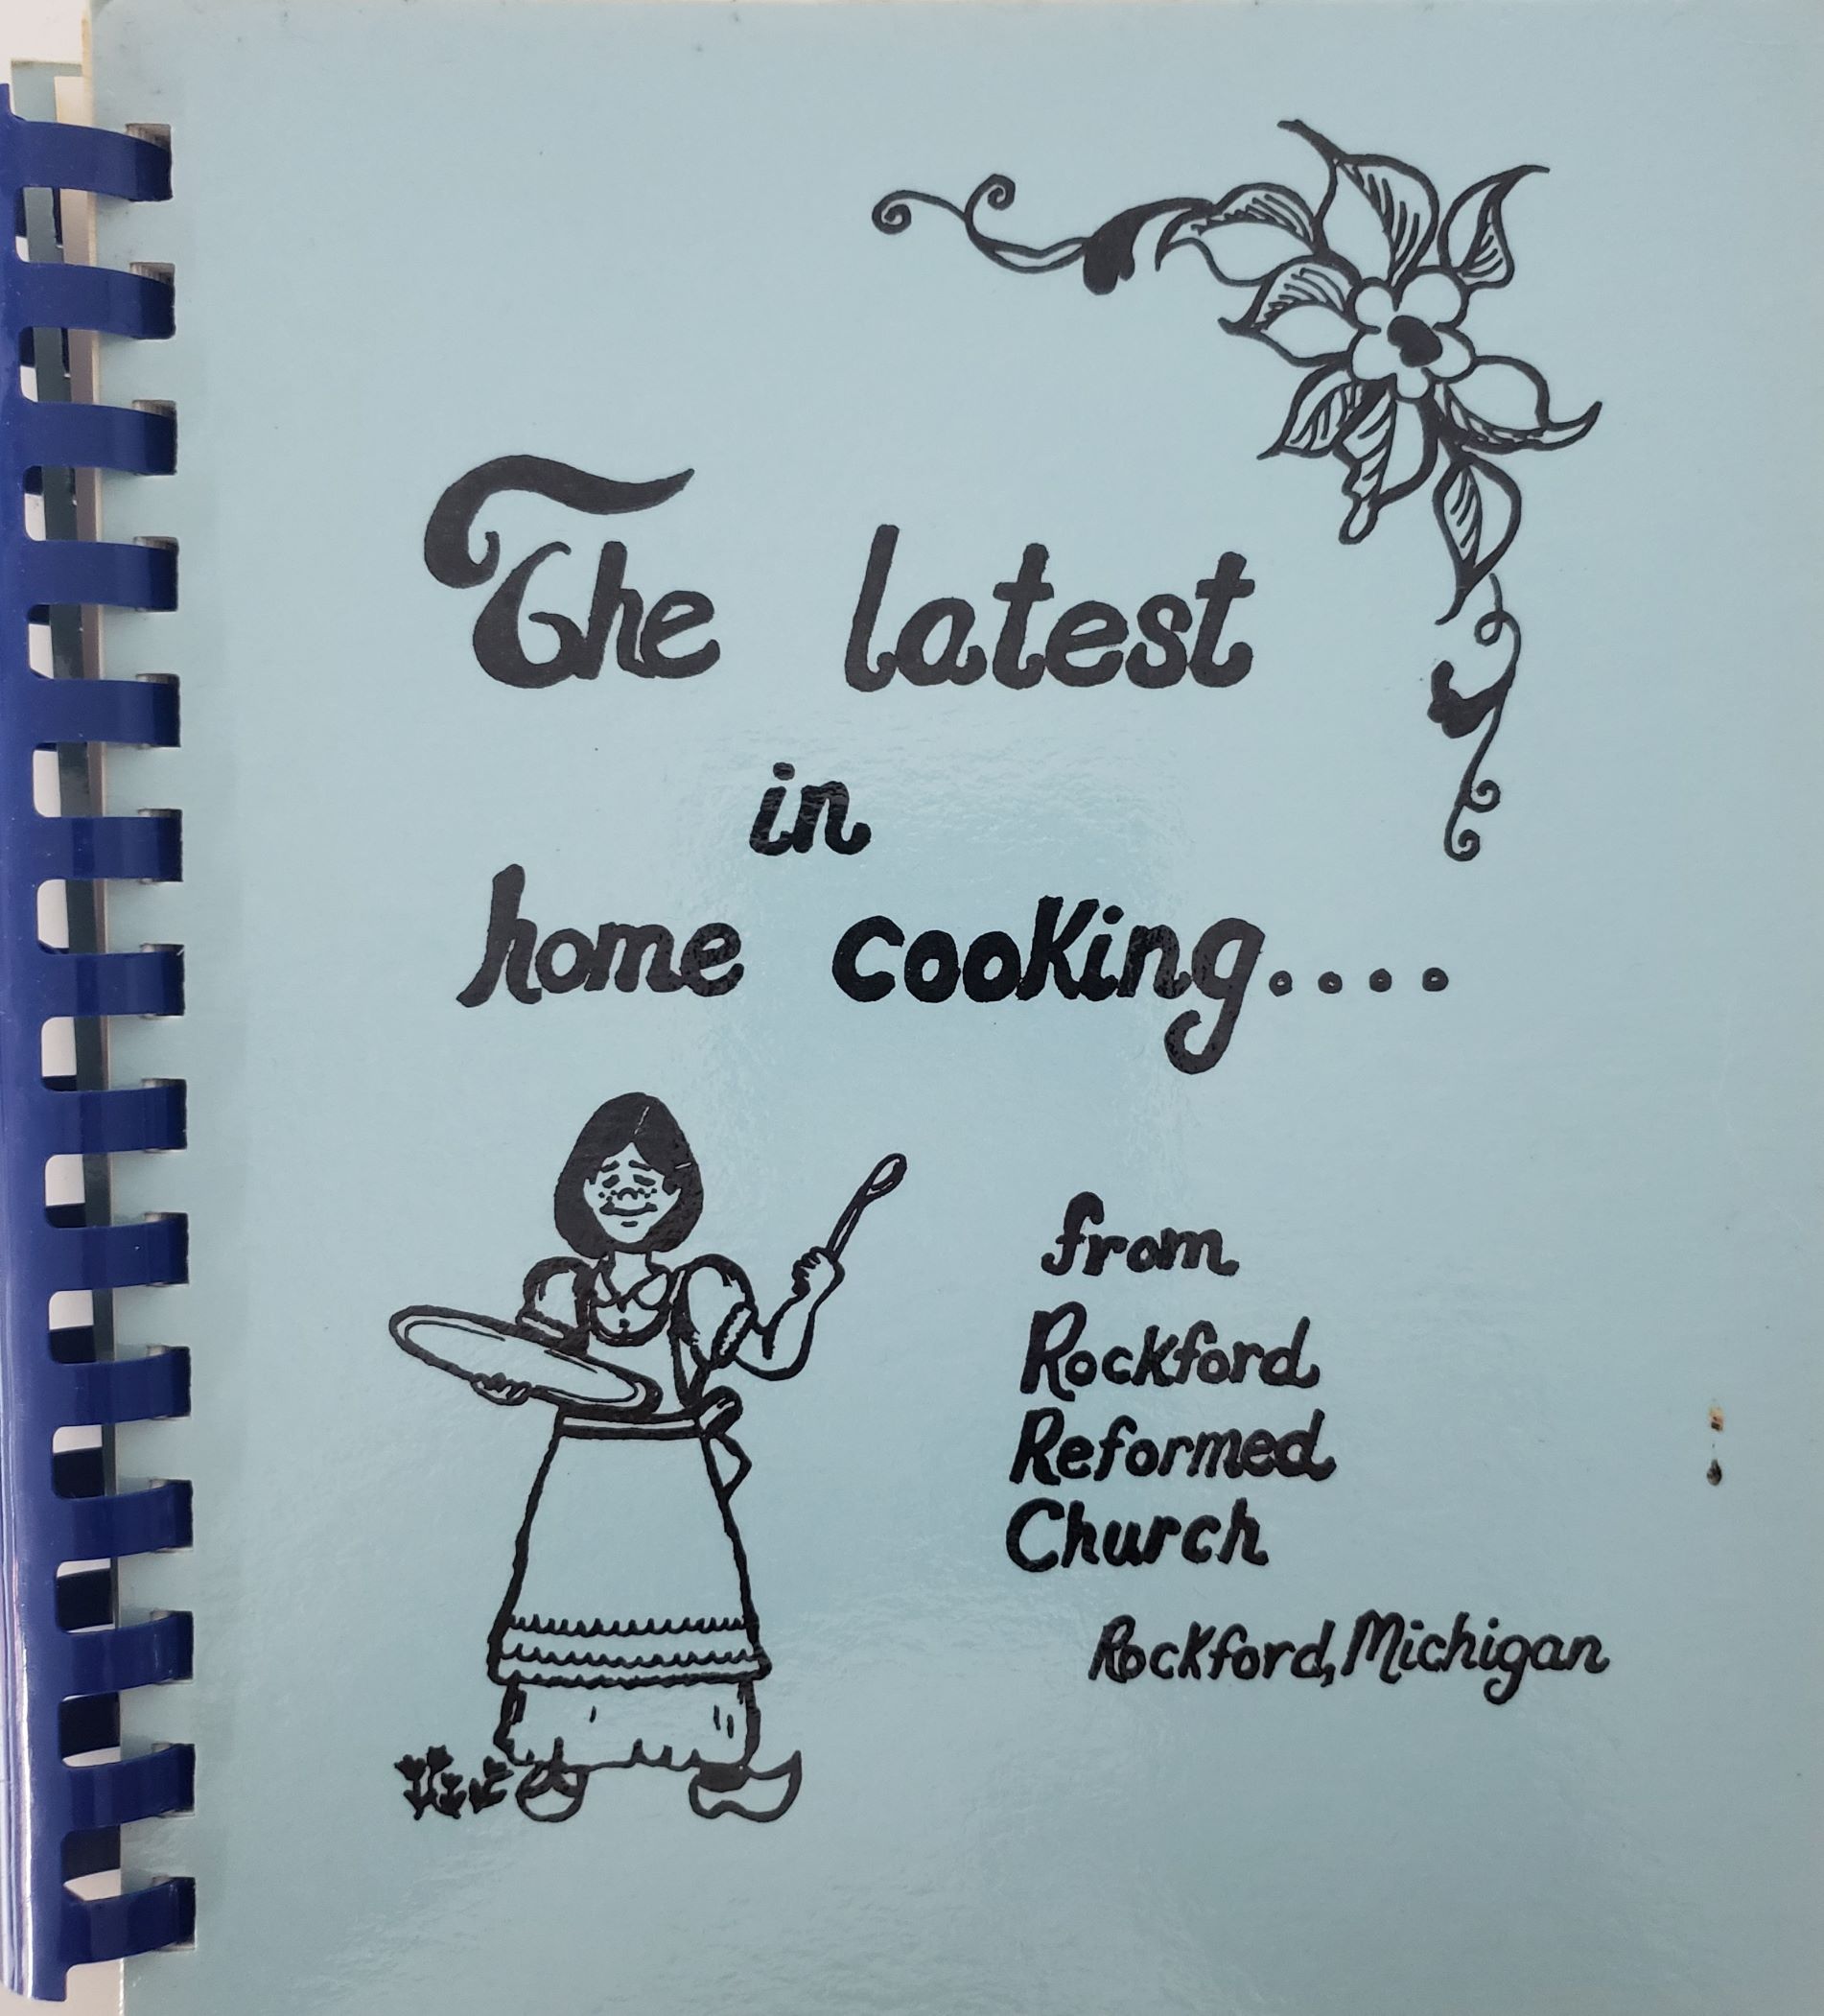 The latest
in
home cooking....
from
Rockford
Reformed
Church
Rockford, Michigan